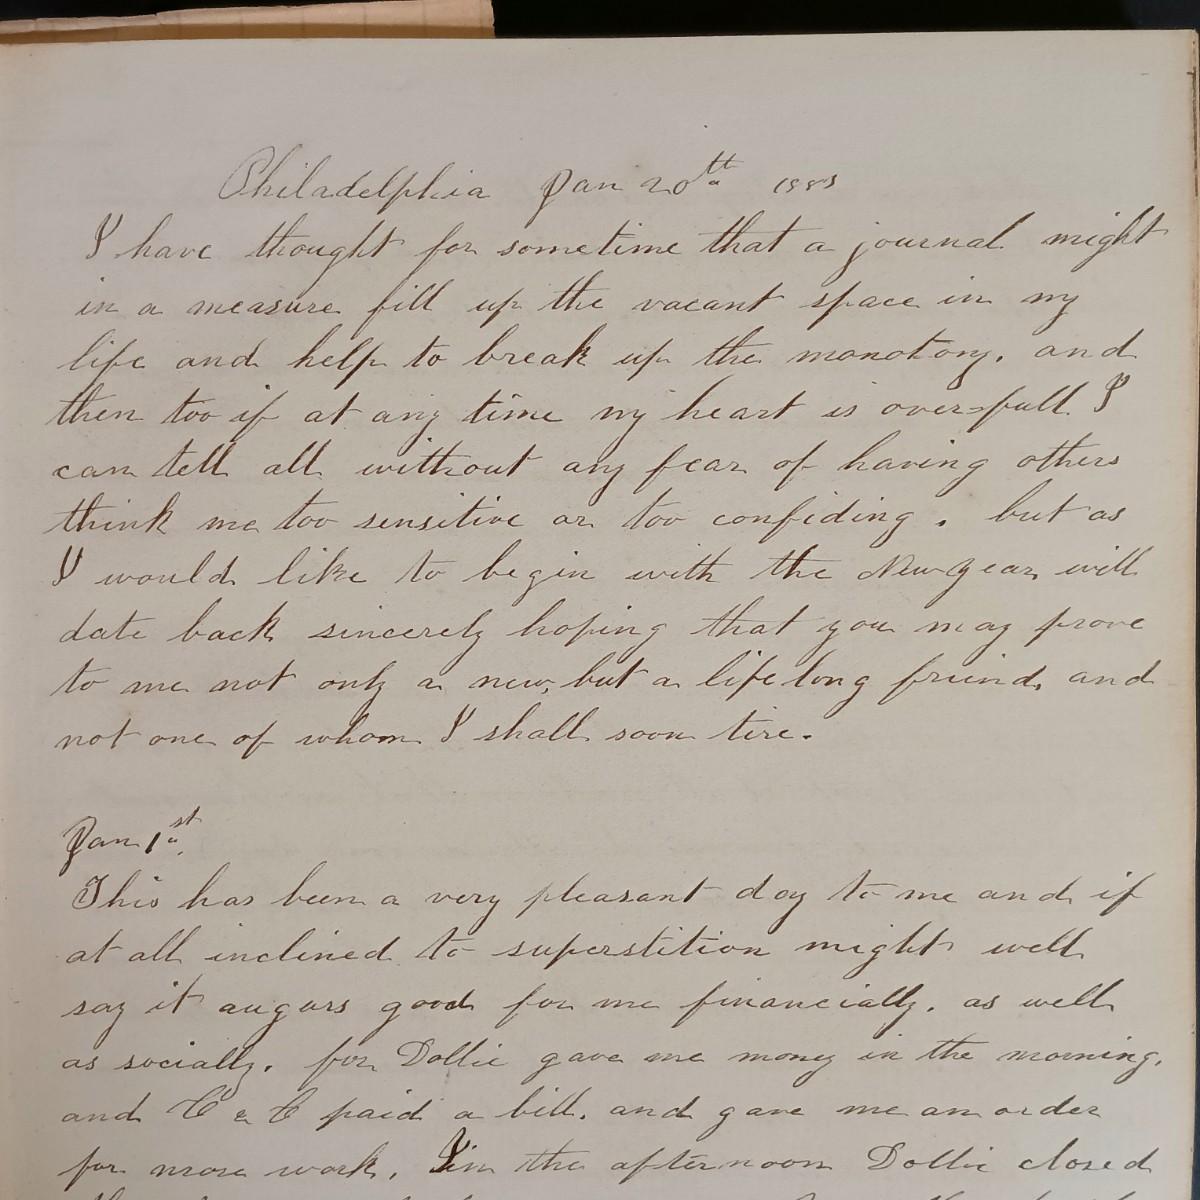 Philadelphia Jan 20th 1883
I have thought for sometime that a journal might
in a measure fill up the vacant space in my
life and help to break up the monotony. and
then too if at any time my heart is over-full I
can tell all without any fear of having others
think me too sensitive or too confiding. but as
I would like to begin with the New Year will
date back sincerely hoping that you may prove
to me not only a new, but a life long friend, and
not one of whom I shall soon tire.
Jan 1st
This has been a very pleasant day to me and if
at all inclined to superstition might well
say it augurs good for me financially. as well
as socially. for Dollie gave me money in the morning.
and C & C paid a bill. and gave me an order
for more work. In the afternoon Dollie closed